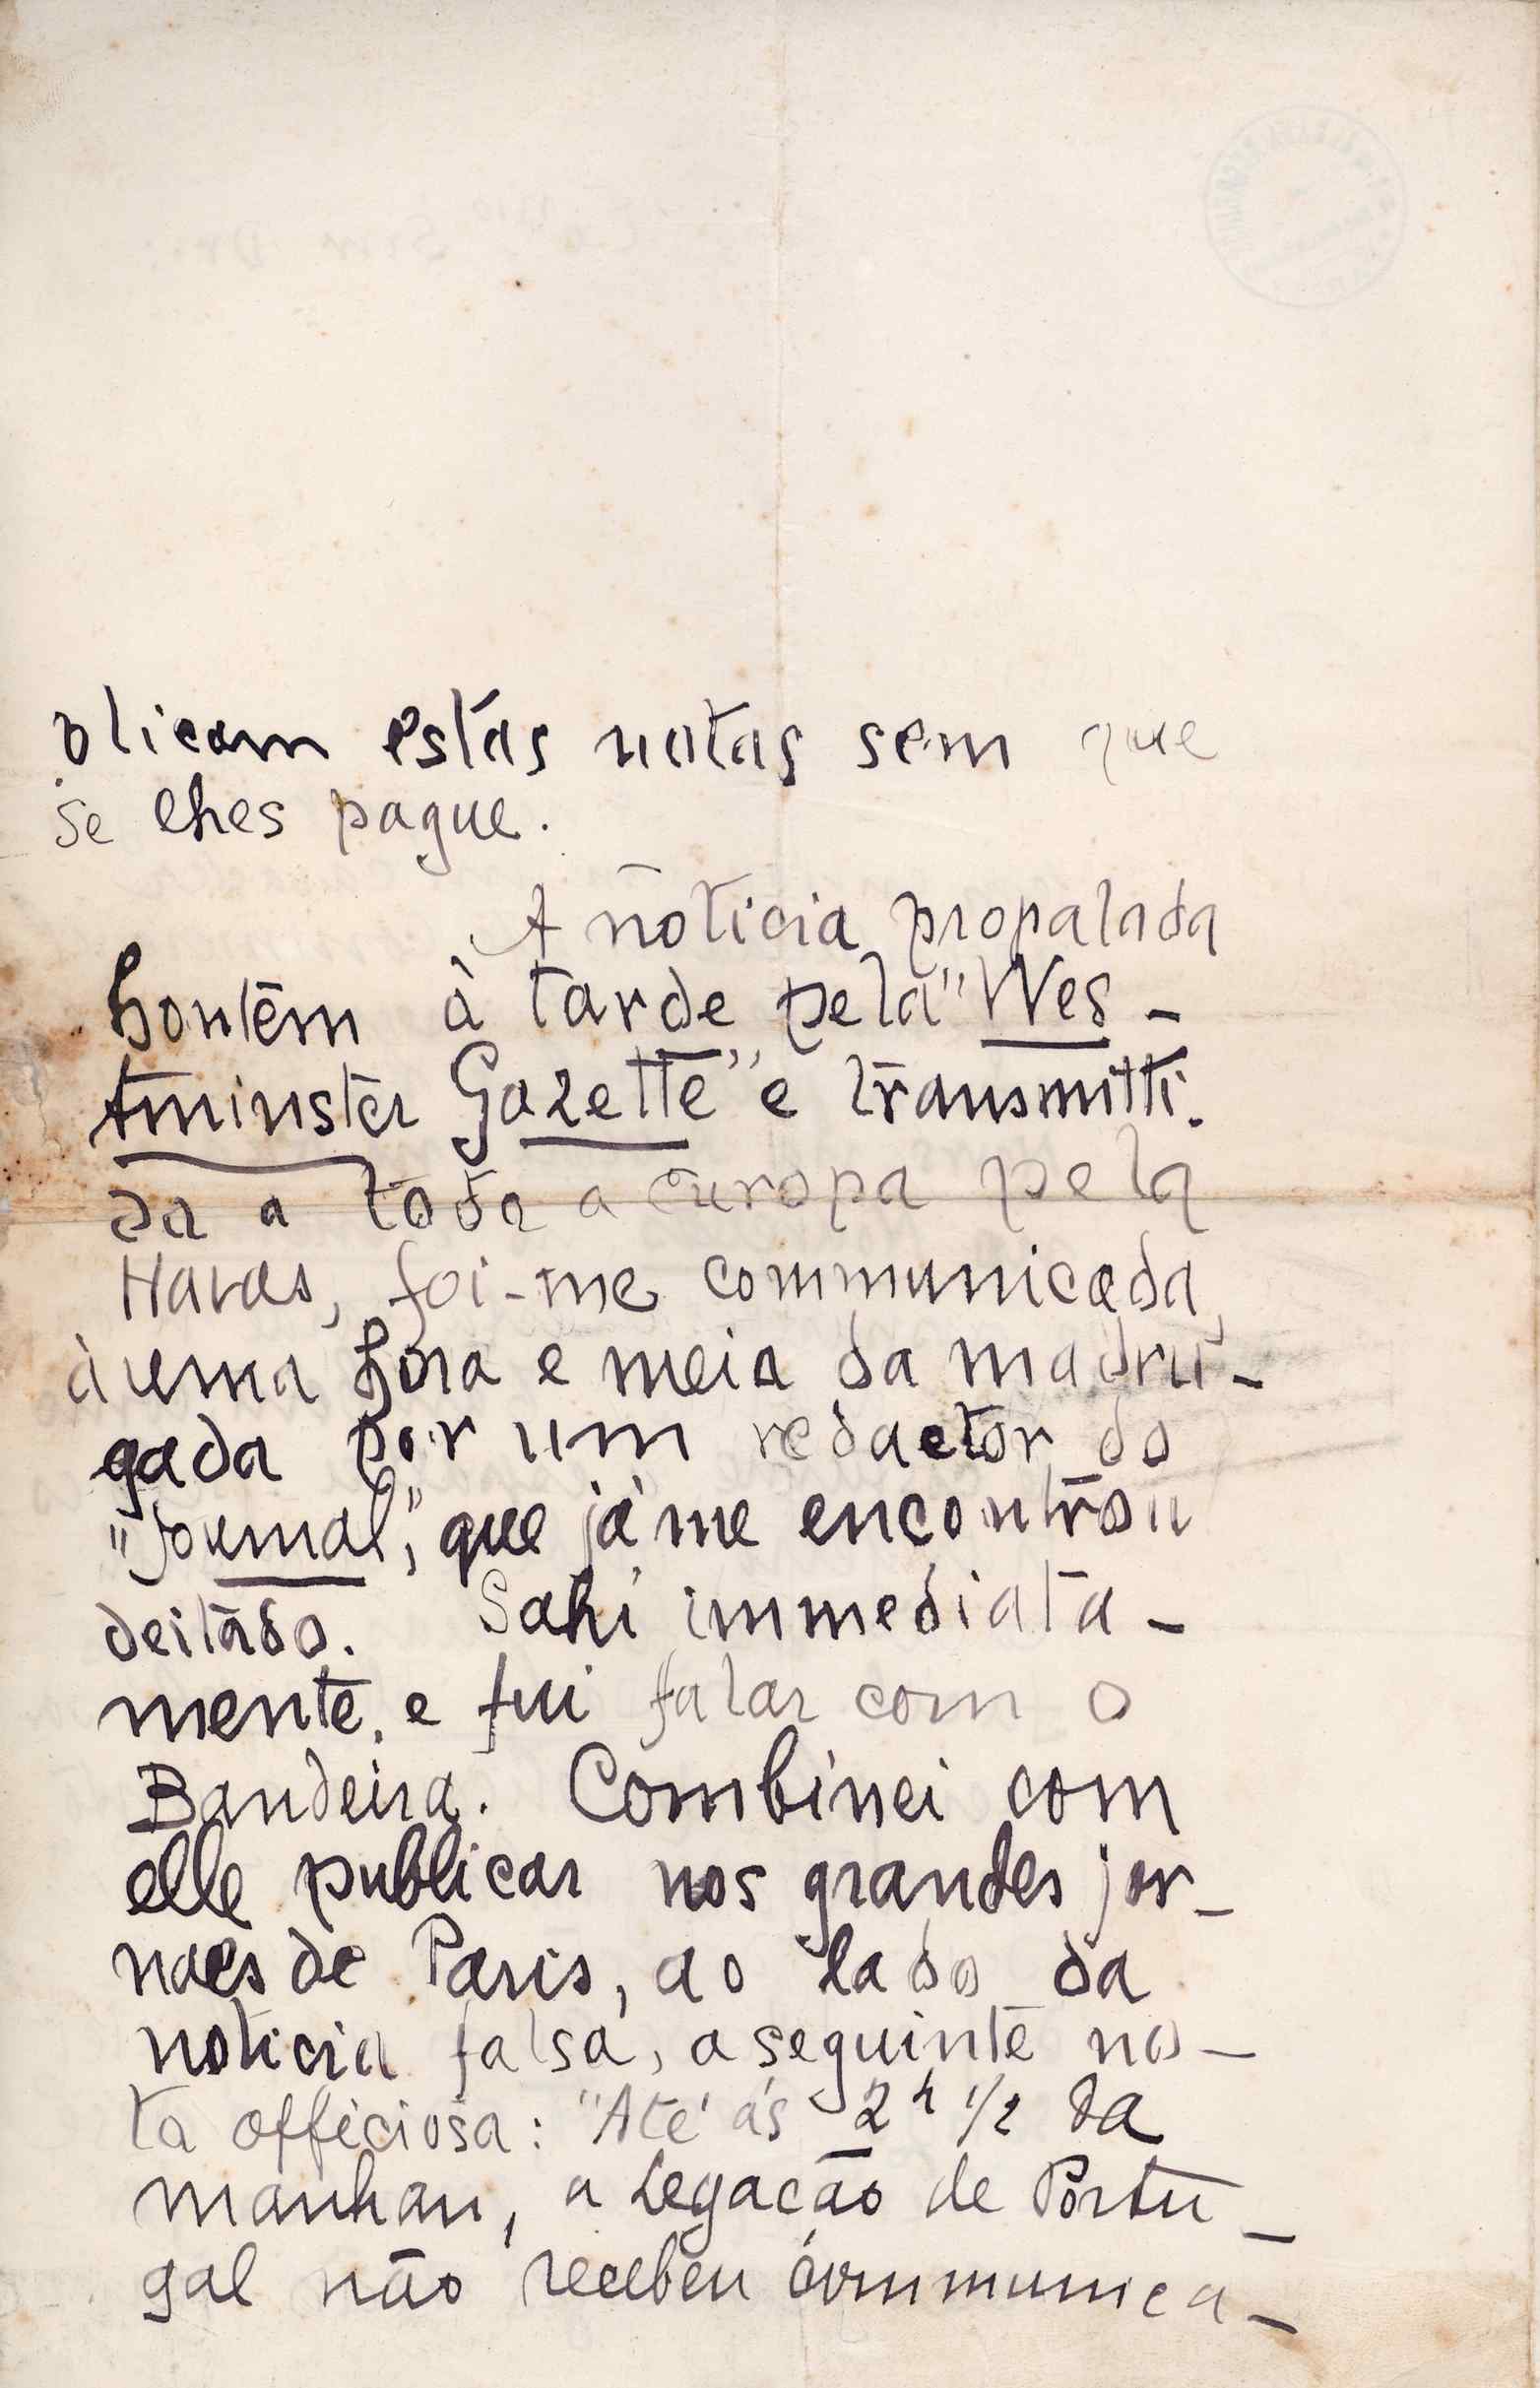 blicam estas notas sem que
se lhes pague.
A noticia propalada
hontem à tarde pela "Wes-
tminster Gazette" e transmitti-
da a toda a Europa pela
Havas, foi-me communicada,
à uma hora e meia da madru-
gada por um redactor do
"Journal", que já me encontrou
deitado. Sahi immediata-
mente, e fui falar com o
Bandeira. Combinei com
elle publicar nos grandes jor-
naes de Paris, ao lado da
noticia falsa, a seguinte no-
ta officiosa: "Até ás 2 h 1/2 da
manhan, a Legação de Portu-
gal não recebeu communica-